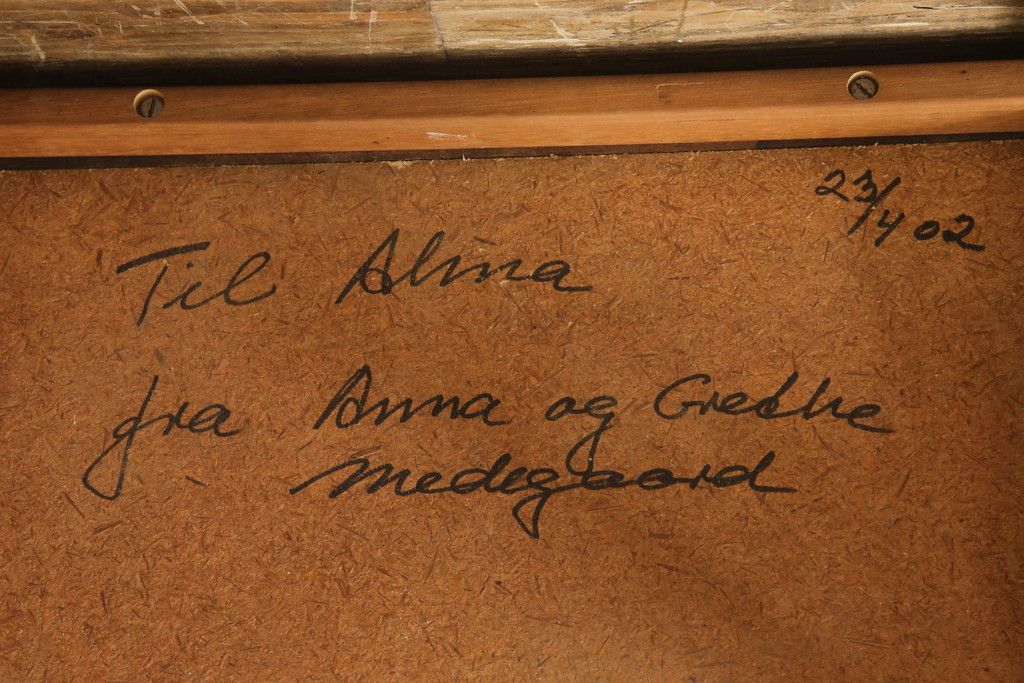 23/4 02
Til Alma
fra Anna og Grethe
Medegaard